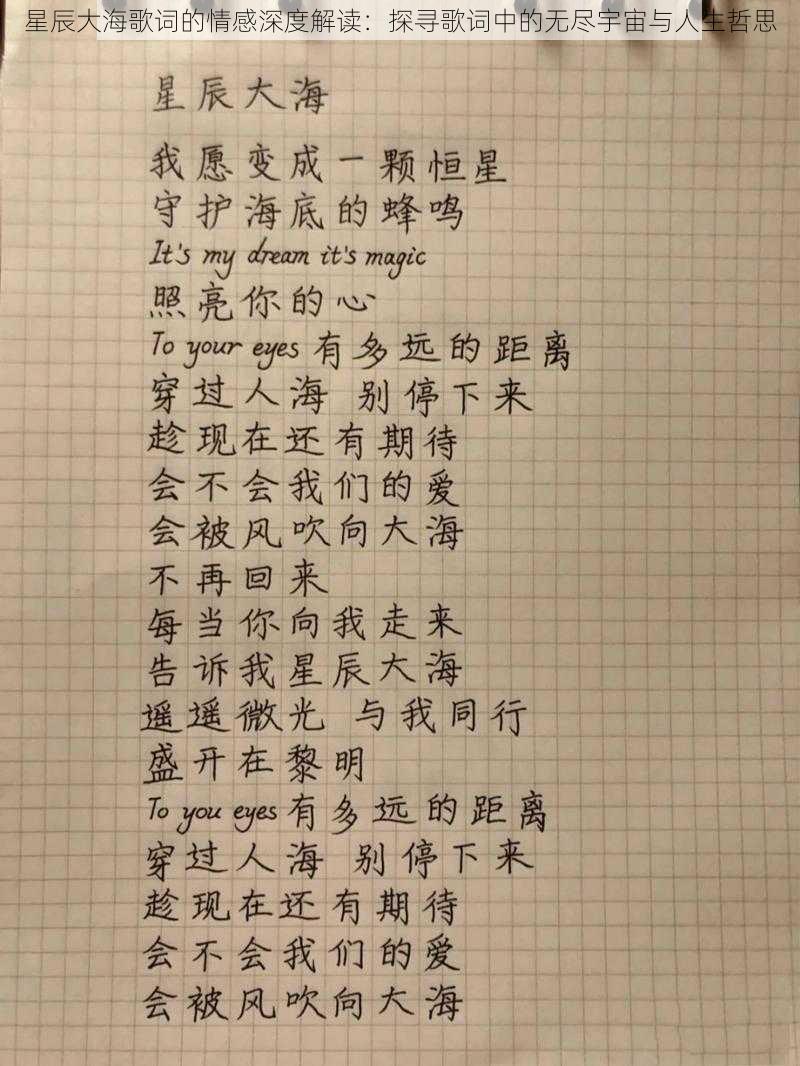 星辰大海歌词的情感深度解读：探寻歌词中的无尽宇宙与人生哲思
星辰大海
我愿变成一颗恒星
守护海底的蜂鸣
It's my dream it's magic
照亮你的心
To your eyes 有多远的距离
穿过人海 别停下来
趁现在还有期待
会不会我们的爱
会被风吹向大海
不再回来
每当你向我走来
告诉我星辰大海
遥遥微光 与我同行
盛开在黎明
To you eyes 有多远的距离
穿过人海 别停下来
趁现在还有期待
会不会我们的爱
会被风吹向大海